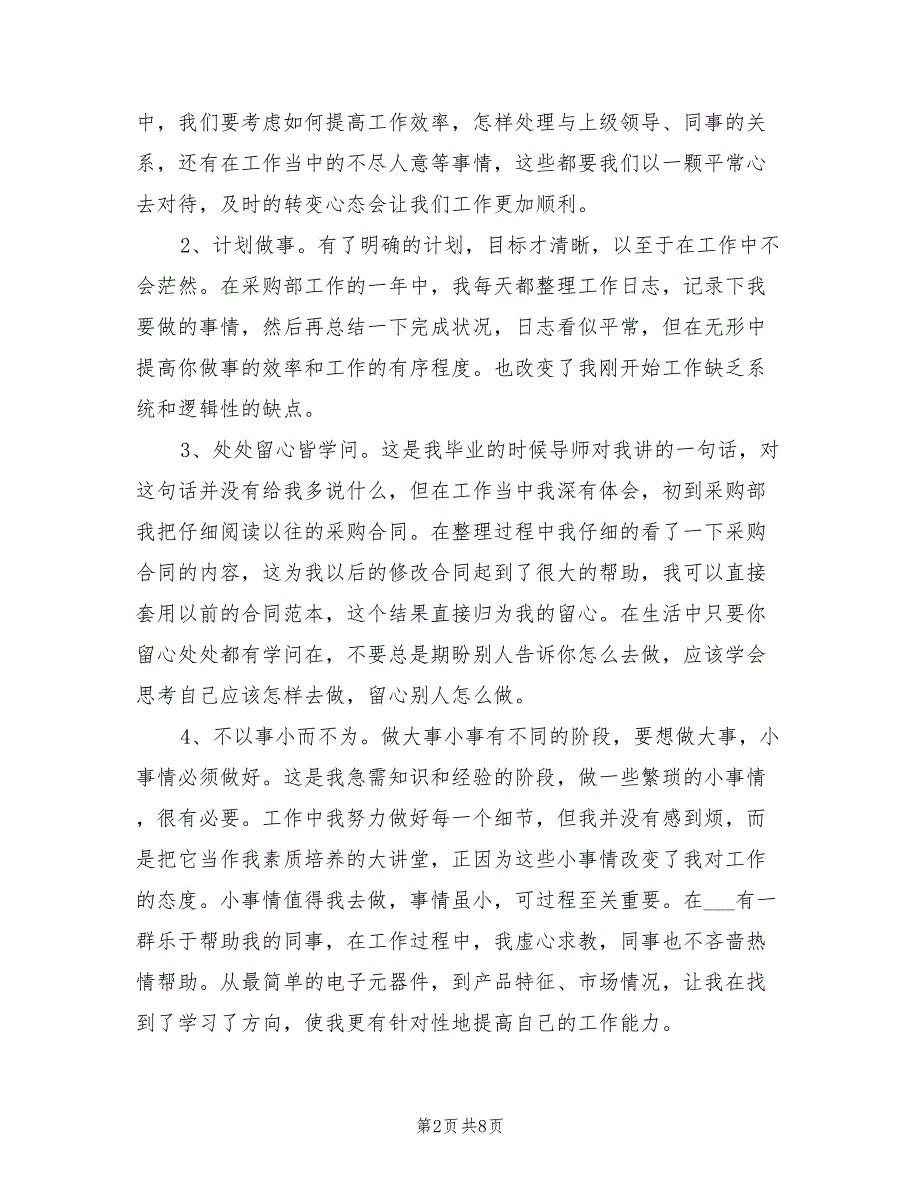 中，我们要考虑如何提高工作效率，怎样处理与上级领导、同事的关
系，还有在工作当中的不尽人意等事情，这些都要我们以一颗平常心
去对待，及时的转变心态会让我们工作更加顺利。
2、计划做事。有了明确的计划，目标才清晰，以至于在工作中不
会茫然。在采购部工作的一年中，我每天都整理工作日志，记录下我
要做的事情，然后再总结一下完成状况，日志看似平常，但在无形中
提高你做事的效率和工作的有序程度。也改变了我刚开始工作缺乏系
统和逻辑性的缺点。
3、处处留心皆学问。这是我毕业的时候导师对我讲的一句话，对
这句话并没有给我多说什么，但在工作当中我深有体会，初到采购部
我把仔细阅读以往的采购合同。在整理过程中我仔细的看了一下采购
合同的内容，这为我以后的修改合同起到了很大的帮助，我可以直接
套用以前的合同范本，这个结果直接归为我的留心。在生活中只要你
留心处处都有学问在，不要总是期盼别人告诉你怎么去做，应该学会
思考自己应该怎样去做，留心别人怎么做。
4、不以事小而不为。做大事小事有不同的阶段，要想做大事，小
事情必须做好。这是我急需知识和经验的阶段，做一些繁琐的小事情
，很有必要。工作中我努力做好每一个细节，但我并没有感到烦，而
是把它当作我素质培养的大讲堂，正因为这些小事情改变了我对工作
的态度。小事情值得我去做，事情虽小，可过程至关重要。在___有一
群乐于帮助我的同事，在工作过程中，我虚心求教，同事也不吝啬热
情帮助。从最简单的电子元器件，到产品特征、市场情况，让我在找
到了学习了方向，使我更有针对性地提高自己的工作能力。
第2页 共8页